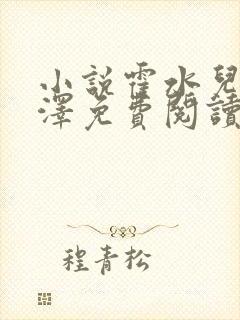 小說霍水兒
澤免費閱讀
程青松